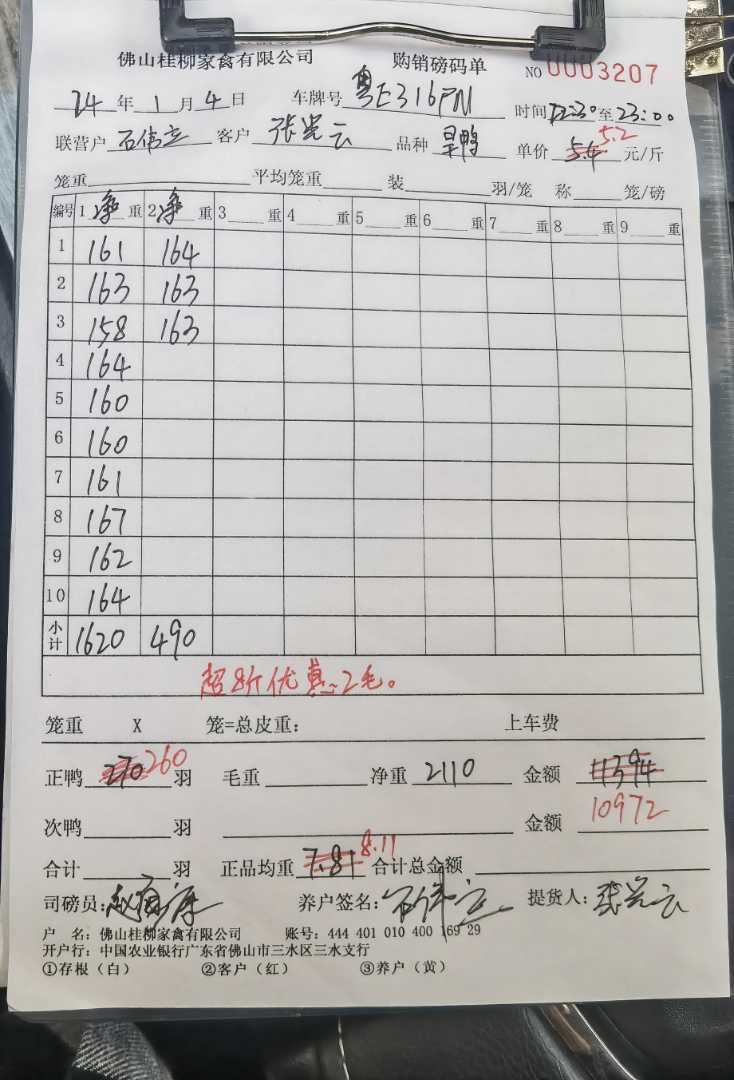 佛山桂柳家禽有限公司 购销磅码单 NO 0003207
24 年 1 月 4 日 车牌号 粤E316PN 时间 22:30 至 23:00
联营户 石伟立 客户 张光云 品种 旱鸭 单价 5.4 5.2 元/斤
笼重 平均笼重 装 羽/笼 称 笼/磅
编号 1 净 重 2 净 重 3 重 4 重 5 重 6 重 7 重 8 重 9 重
1 161 164
2 163 163
3 158 163
4 164
5 160
6 160
7 161
8 167
9 162
10 164
小计 1620 490
超8斤优惠2毛。
笼重 X 笼=总皮重: 上车费
正鸭 270 260 羽 毛重 净重 2110 金额 11394
次鸭 羽 金额 10972
合计 羽 正品均重 7.81 8.11 合计总金额
司磅员: 养户签名: 石伟立 提货人: 张光云
户 名: 佛山桂柳家禽有限公司 账号: 444 401 010 400 169 29
开户行: 中国农业银行广东省佛山市三水区三水支行
①存根（白） ②客户（红） ③养户（黄）